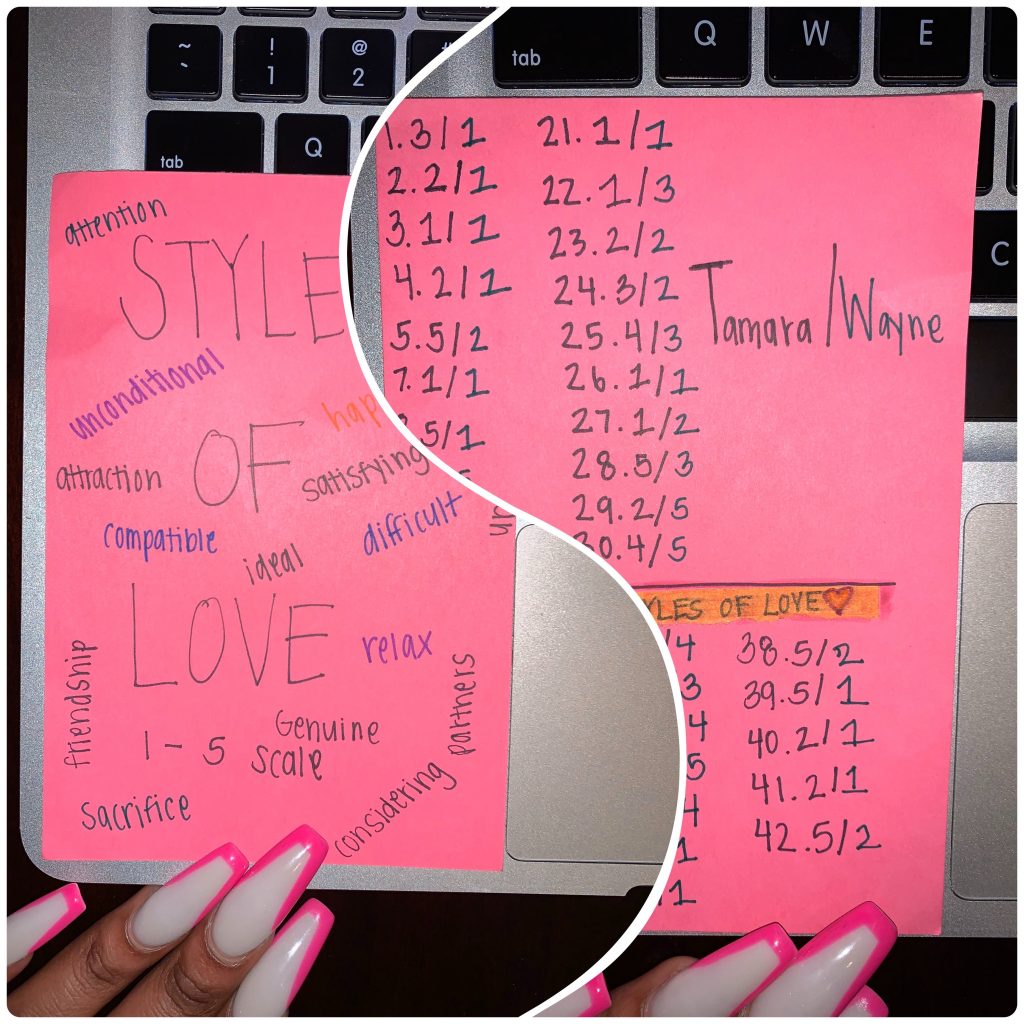 ~
`
!
1
@
2
tab
Q
attention
STYLE
unconditional
attraction
OF
satisfying
compatible
difficult
ideal
LOVE
relax
friendship
partners
Genuine
1 - 5 scale
considering
sacrifice
tab
Q
W
E
C
1.3/1
2.2/1
3.1/1
4.2/1
5.5/2
7.1/1
5/1
21.1/1
22.1/3
23.2/2
24.3/2
25.4/3
26.1/1
27.1/2
28.5/3
29.2/5
30.4/5
Tamara/Wayne
YLES OF LOVE♡
/4
3
4
5
4
1
/1
38.5/2
39.5/1
40.2/1
41.2/1
42.5/2